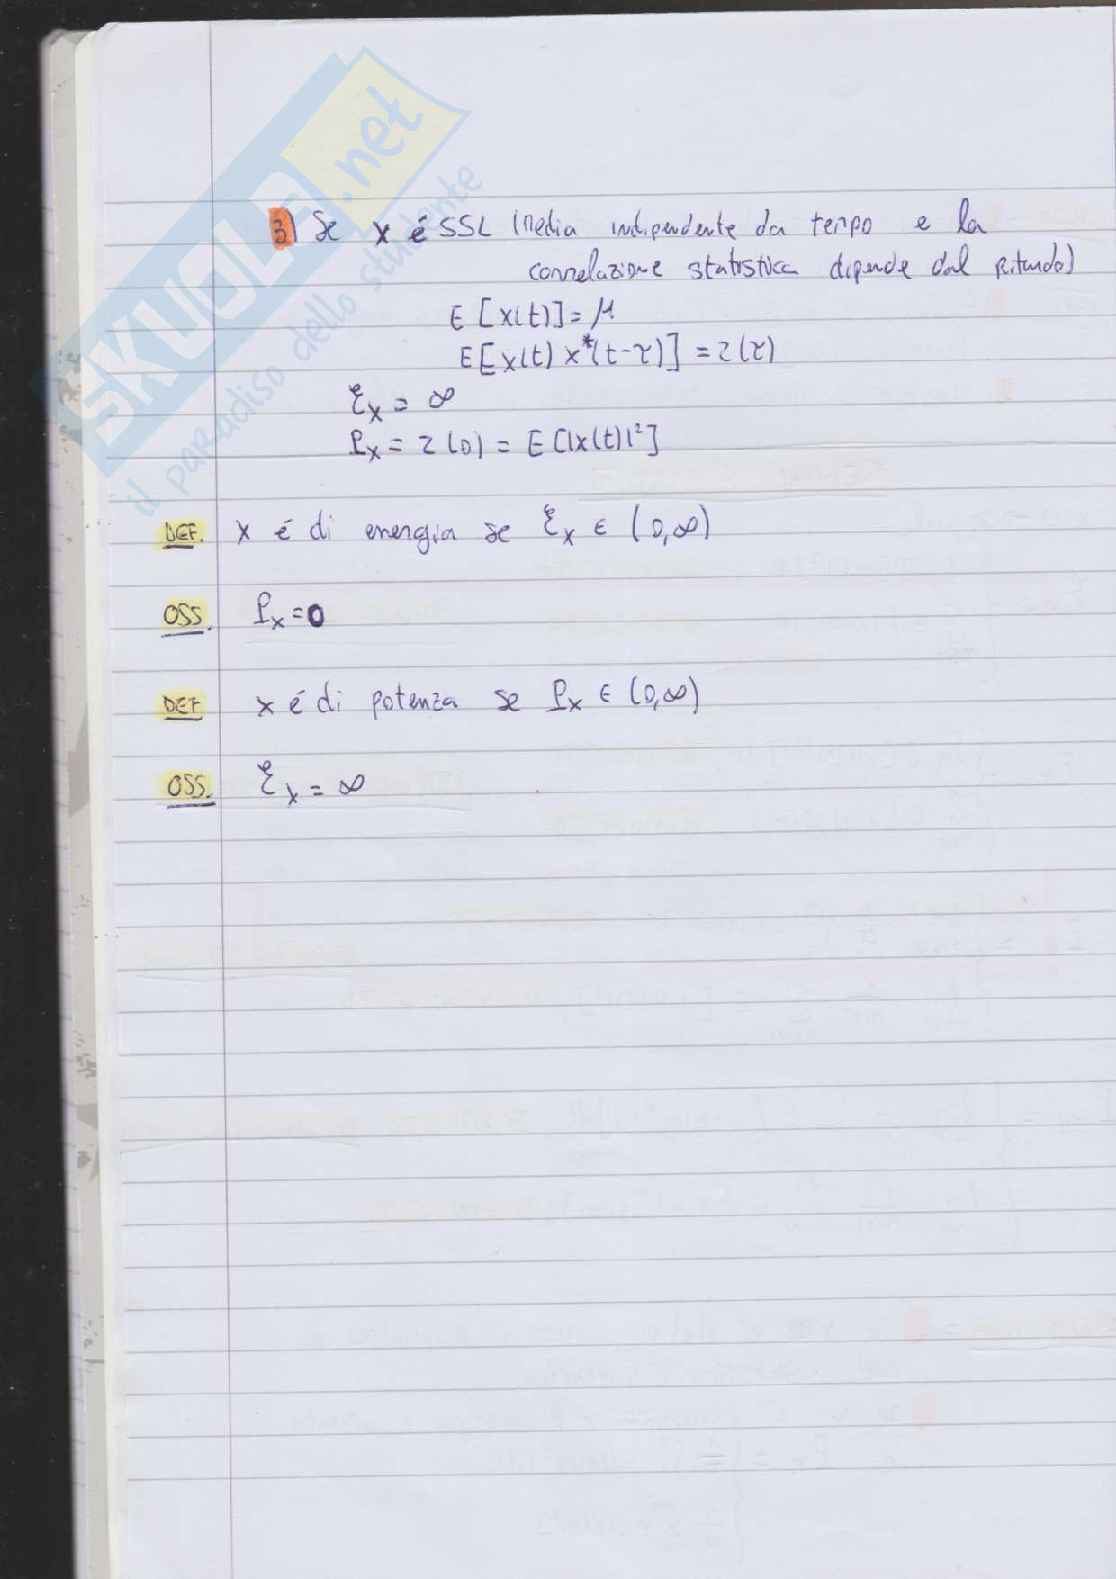 SKUOLA.net
il paradiso dello studente
3) Se x é SSL (media indipendente da tempo e la
correlazione statistica dipende dal ritardo)
E[x(t)]=μ
E[x(t) x*(t-τ)] = r(τ)
Ɛx = ∞
Px = r(0) = E[|x(t)|²]
DEF. x é di energia se Ɛx ∈ (0,∞)
OSS. Px=0
DEF x é di potenza se Px ∈ (0,∞)
OSS. Ɛx = ∞